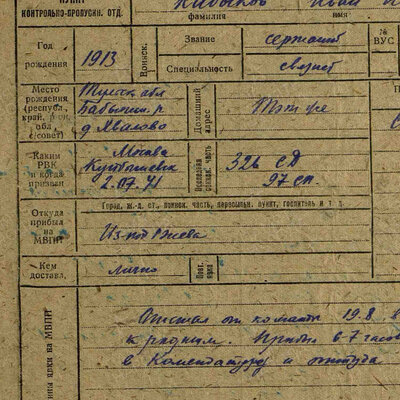 КОНТРОЛЬНО-ПРОПУСКН. ОТД.
фамилия
имя
Год рождения
1913
Воинск.
Звание
сержант
№ ВУС
Специальность
связист
Место рождения (республ. край, р-он, обл., с/совет)
Тульск обл
Бабынин. р.
Домашний адрес
Там же
Каким РВК и когда призван
Москва
2.07.41
326 с.д
97 сп.
Откуда прибыл на МВПП
Город, ж.-д. ст., воинск. часть, пересыльн. пункт, госпиталь и т. д.
Из-под Ржева
Кем доставл.
лично
Отстал от команды 19.8
к родным. Прибыл 6-7 часов
в Комендатуру и оттуда